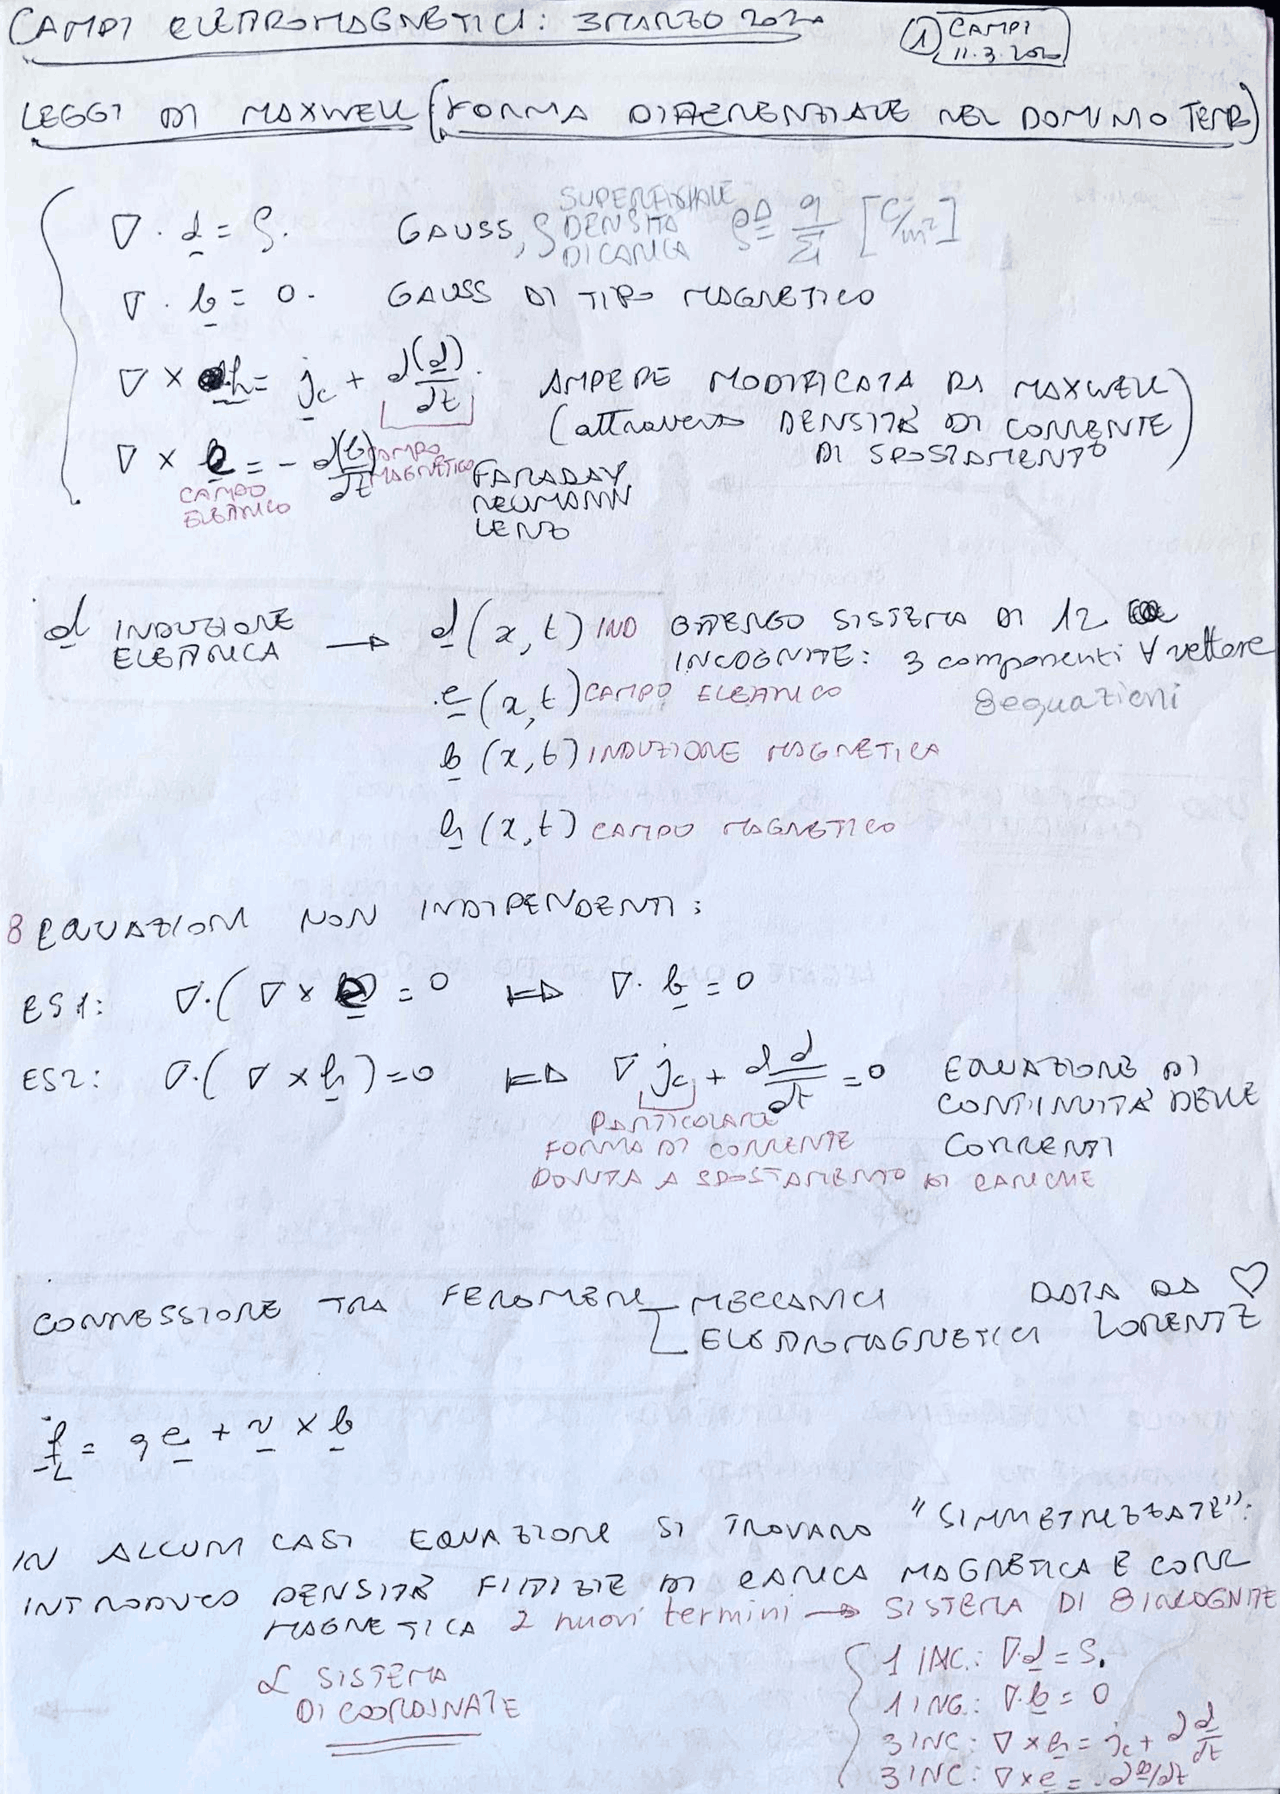 CAMPI ELETTROMAGNETICI: 3 MARZO 2020
1 CAMPI
11.3.2020
LEGGI DI MAXWELL (FORMA DIFFERENZIALE NEL DOMINIO TEMP)
∇ · d = ρ. GAUSS, ρ SUPERFICIALE DENSITA DI CARICA ρ ≜ q/Σ [C/m²]
∇ · b = 0. GAUSS DI TIPO MAGNETICO
∇ × h = jc + d(d)/dt. AMPERE MODIFICATA DA MAXWELL
(attraverso DENSITÀ DI CORRENTE
DI SPOSTAMENTO)
∇ × e = - d(b)/dt CAMPO MAGNETICO
CAMPO ELETTRICO
FARADAY
NEUMANN
LENZ
d INDUZIONE ELETTRICA → d(x,t) IND OTTENGO SISTEMA DI 12
INCOGNITE: 3 componenti ∀ vettore
e(x,t) CAMPO ELETTRICO 8 equazioni
b(x,t) INDUZIONE MAGNETICA
h(x,t) CAMPO MAGNETICO
8 EQUAZIONI NON INDIPENDENTI:
ES1: ∇·(∇ × e) = 0 ⟺ ∇· b = 0
ES2: ∇·(∇ × h) = 0 ⟺ ∇ jc + d d/dt = 0 EQUAZIONE DI
CONTINUITÀ DELLE
CORRENTI
PARTICOLARE
FORMA DI CORRENTE
DOVUTA A SPOSTAMENTO DI CARICHE
CONNESSIONE TRA FENOMENI MECCANICI DATA DA ♡
ELETTROMAGNETICI LORENTZ
f_L = q e + v × b
IN ALCUNI CASI EQUAZIONI SI TROVANO "SIMMETRIZZATE":
INTRODUCO DENSITÀ FITTIZIE DI CARICA MAGNETICA E CORR
MAGNETICA 2 nuovi termini → SISTEMA DI 8 INCOGNITE
SISTEMA
DI COORDINATE
1 INC.: ∇·d = ρ.
1 INC.: ∇·b = 0
3 INC: ∇ × h = jc + d d/dt
3 INC: ∇ × e = - d b/dt